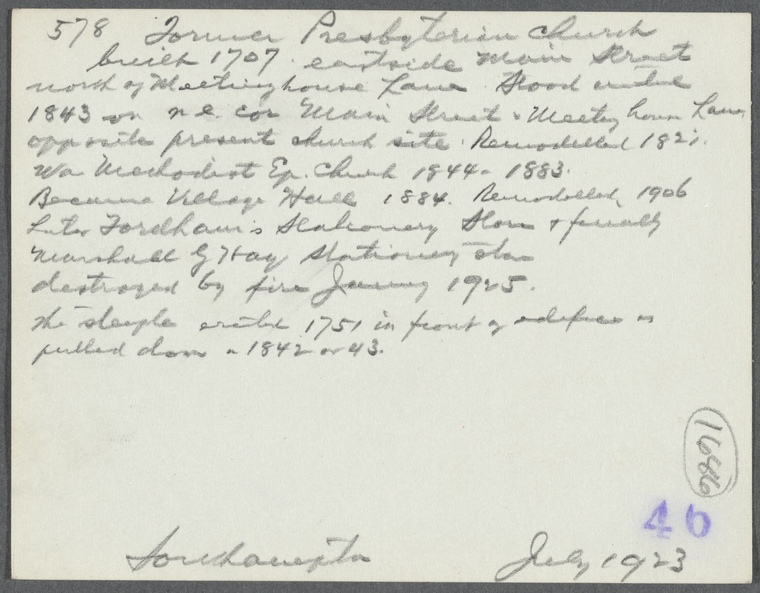 578 Former Presbyterian Church
built 1707 eastside Main Street
north of Meetinghouse Lane Stood until
1843 on n.e. cor Main Street & Meeting house Lane
opposite present church site. Remodelled 182
Was Methodist Ep. Church 1844 - 1883.
Became Village Hall 1884. Remodelled, 1906
Later Fordham's Stationery Store & finally
Marshall G Hay Stationery Store
destroyed by fire January 1925.
The steeple erected 1751 in front of edifice
pulled down 1842 or 43.
1686
46
Southampton July 1923